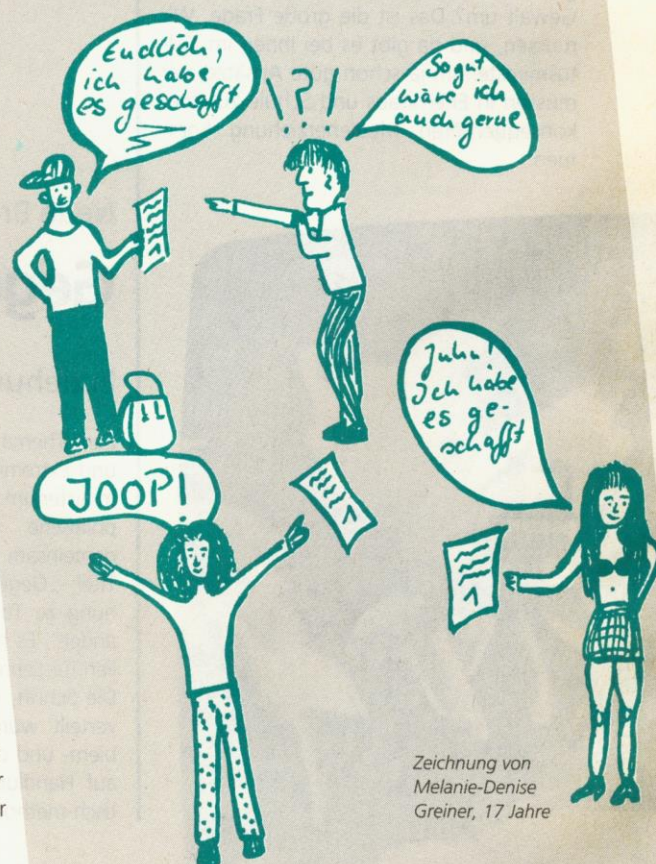 Endlich,
ich habe
es geschafft
!?!
So gut
wäre ich
auch gerne
Juhu!
Ich habe
es ge-
schafft
JOOP!
1
1
Zeichnung von
Melanie-Denise
Greiner, 17 Jahre
r
r